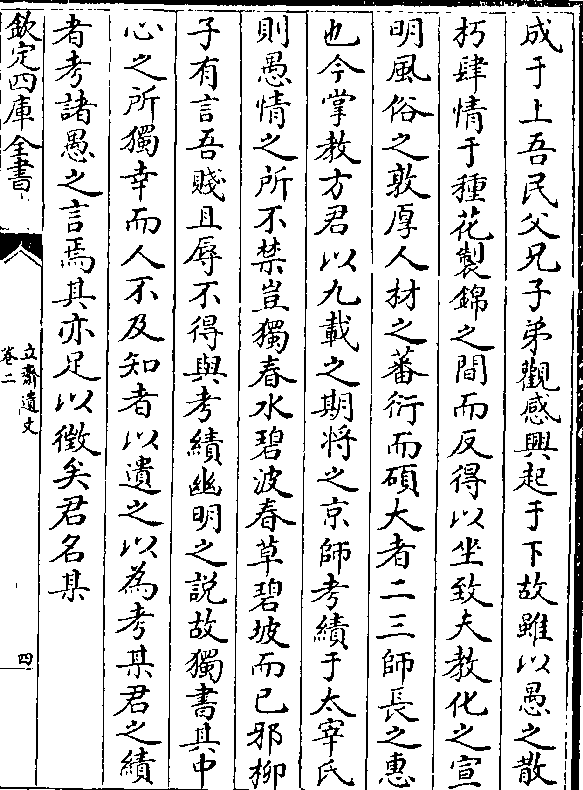 成于上吾民父兄子弟觀感興起于下故雖以愚之散
朽肆情于種花製錦之間而反得以坐致夫教化之宣
明風俗之敦厚人材之蕃衍而碩大者二三師長之惠
也今掌教方君以九載之期将之京師考績于太宰氏
則愚情之所不禁豈獨春水碧波春草碧坡而已邪柳
子有言吾賤且辱不得與考績幽明之説故獨書其中
心之所獨幸而人不及知者以遺之以為考某君之績
者考諸愚之言焉其亦足以徵矣君名某
欽定四庫全書
立齋遺文
卷二
四